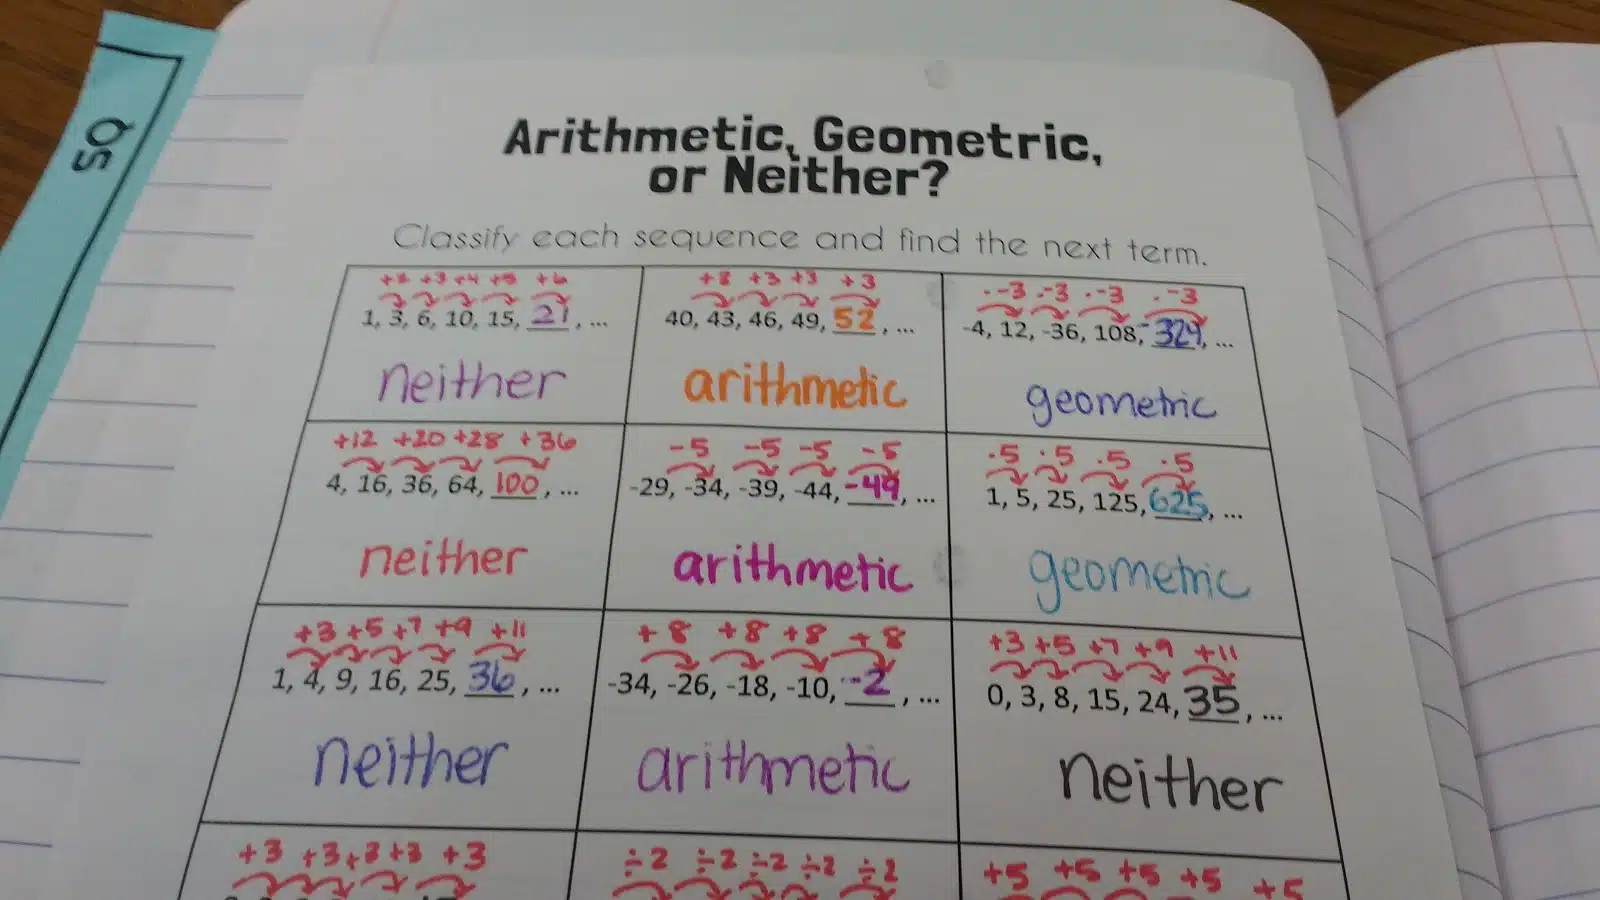 QS
Arithmetic, Geometric,
or Neither?
Classify each sequence and find the next term.
+2 +3 +4 +5 +6
1, 3, 6, 10, 15, 21, ...
neither
+3 +3 +3
40, 43, 46, 49, 52, ...
arithmetic
·-3 ·-3 ·-3 ·-3
-4, 12, -36, 108, -324, ...
geometric
+12 +20 +28 +36
4, 16, 36, 64, 100, ...
neither
-5 -5 -5 -5
-29, -34, -39, -44, -49, ...
arithmetic
·5 ·5 ·5 ·5
1, 5, 25, 125, 625, ...
geometric
+3 +5 +7 +9 +11
1, 4, 9, 16, 25, 36, ...
neither
+8 +8 +8 +8
-34, -26, -18, -10, -2, ...
arithmetic
+3 +5 +7 +9 +11
0, 3, 8, 15, 24, 35, ...
neither
+3 +3 +3 +3 +3
÷2 ÷2 ÷2 ÷2 ÷2
+5 +5 +5 +5 +5